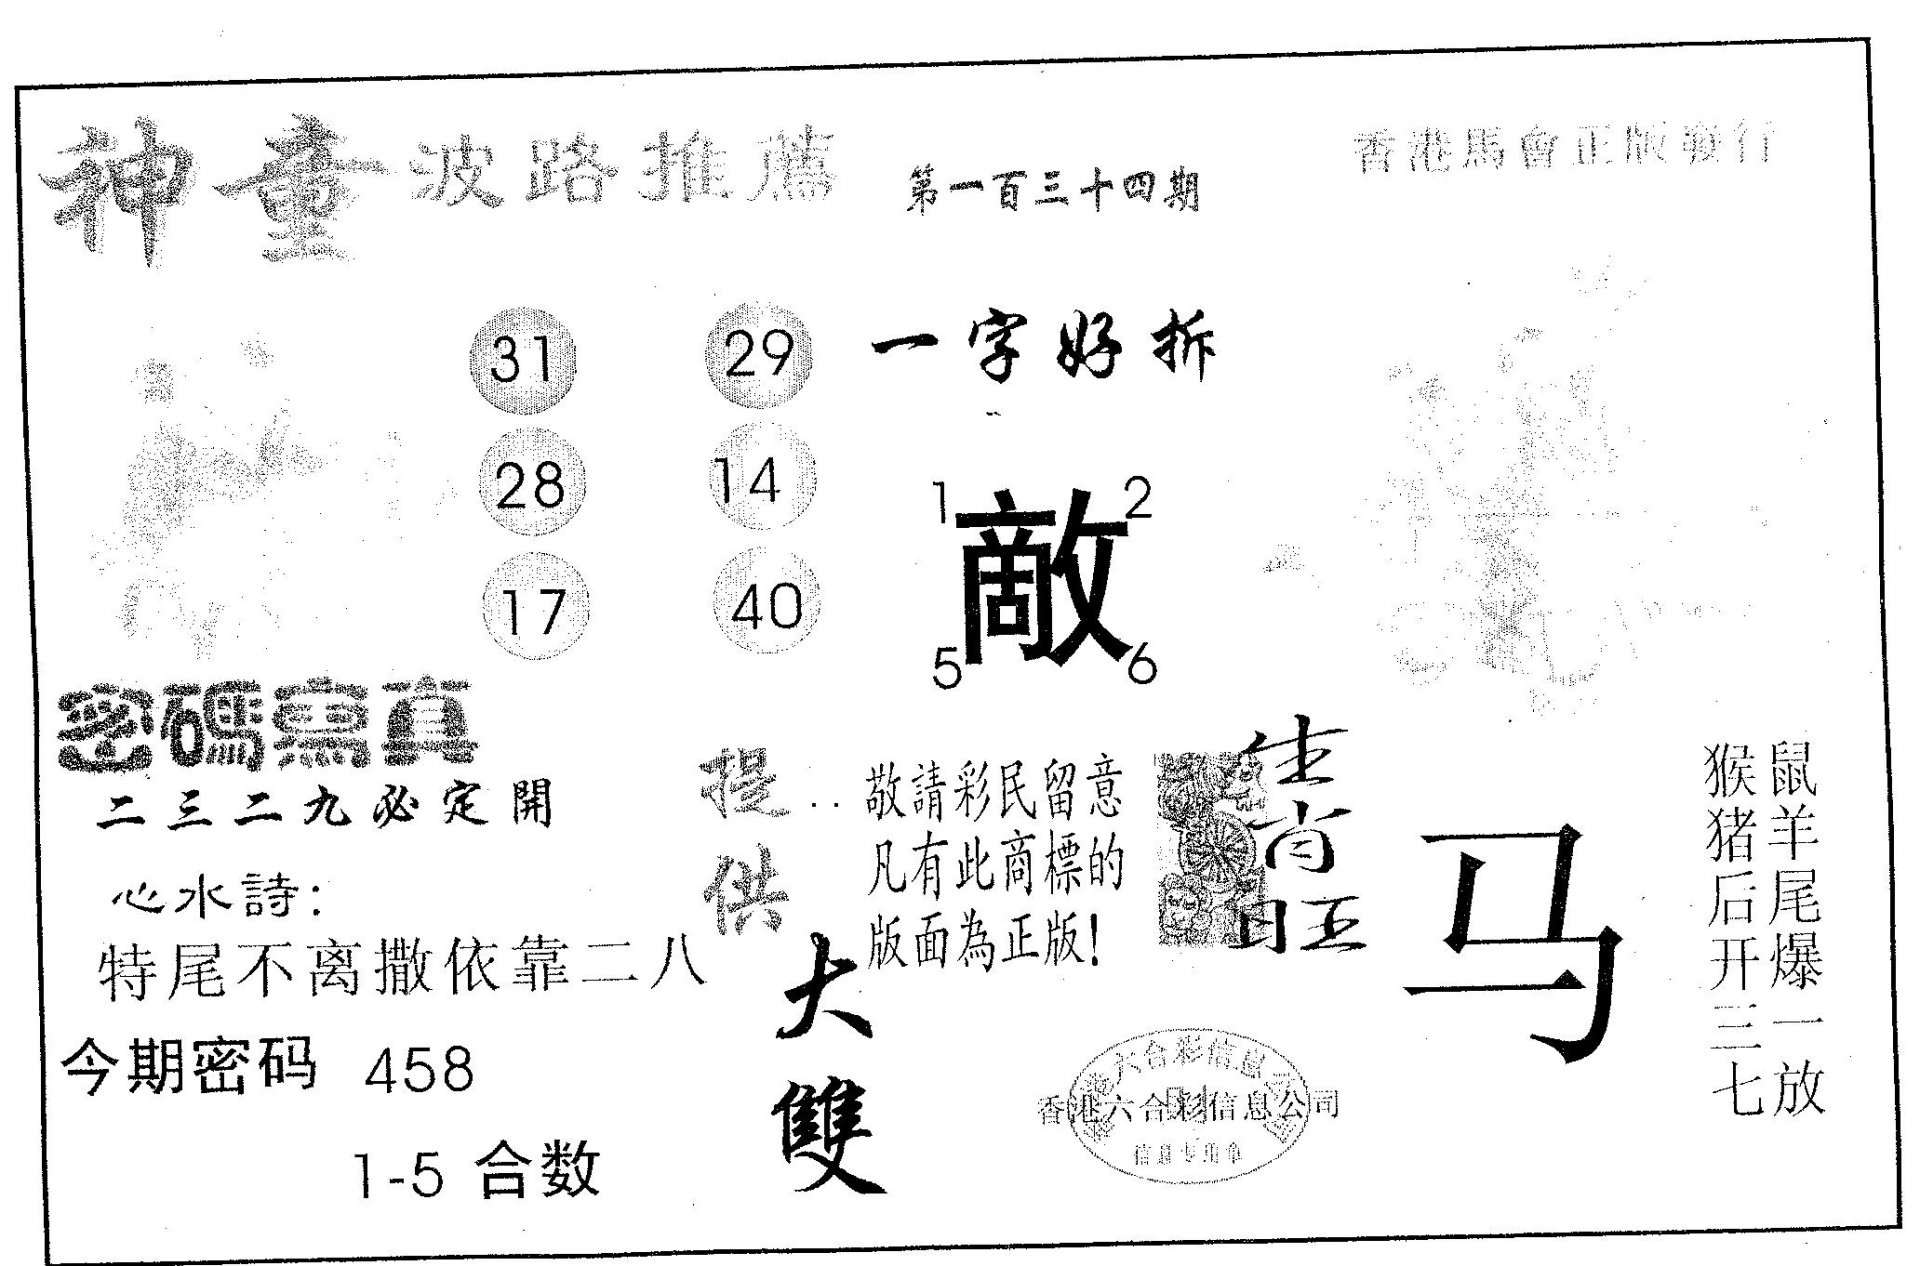 神童波路推薦
第一百三十四期
香港馬會正版發行
31 29
28 14
17 40
一字好拆
1 2
敵
5 6
密碼寫真
二三二九必定開
心水詩：
特尾不离撒依靠二八
今期密码 458
1-5 合数
提供
大雙
敬請彩民留意
凡有此商標的
版面為正版！
生肖旺
马
鼠羊尾爆一放
猴猪后开三七
香港六合彩信息公司